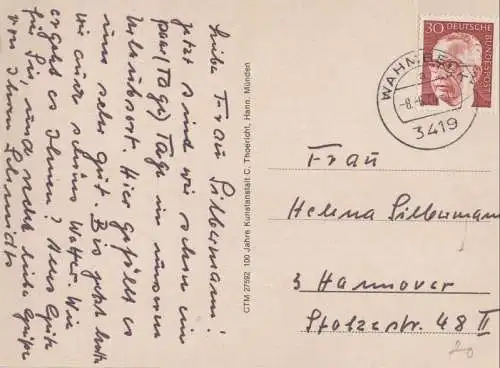 Liebe Frau Silbermann!
Jetzt sind wir schon ein
paar (Tage) Tage in unserm
Urlaubsort. Hier gefällt es
uns sehr gut. Bis jetzt hatten
wir auch schönes Wetter. Wie
ergeht es Ihnen? Alles Gute
für Sie, und recht liebe Grüße
von Ihren Schmidts
CTM 27592 100 Jahre Kunstanstalt C. Thoericht, Hann. Münden
30 DEUTSCHE BUNDESPOST
WAHMBECK
3419
Frau
Helena Silbermann
3 Hannover
Stolzestr. 48 II